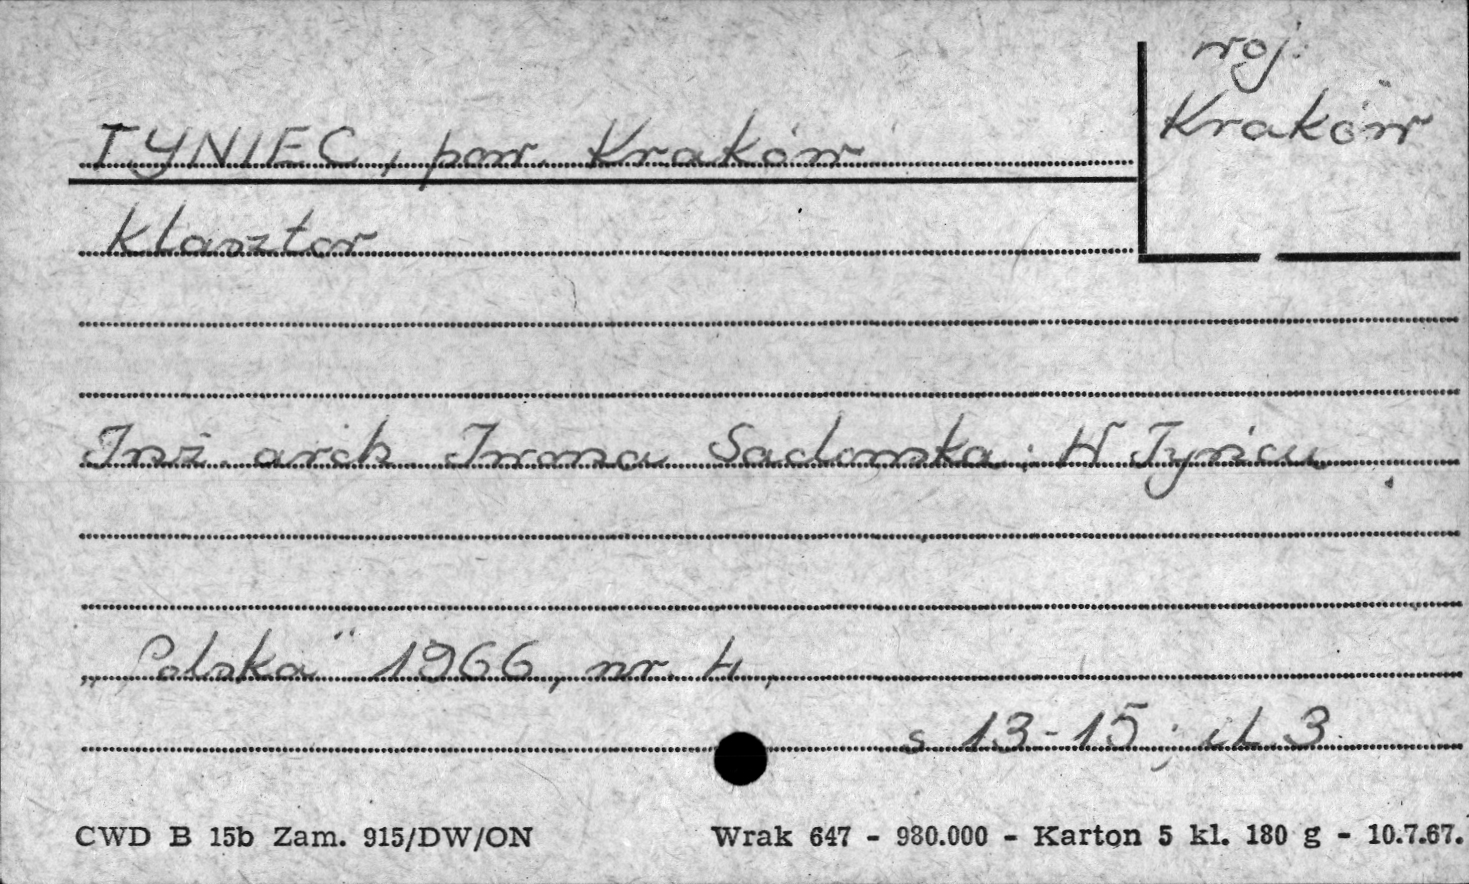 woj.
Kraków
TYNIEC, pow. Kraków
Klasztor
Inż. arch. Iwona Sadowska: W Tyńcu
„Polska" 1966, nr. 4,
s. 13-15; il. 3.
CWD B 15b Zam. 915/DW/ON
Wrak 647 - 980.000 - Karton 5 kl. 180 g - 10.7.67.